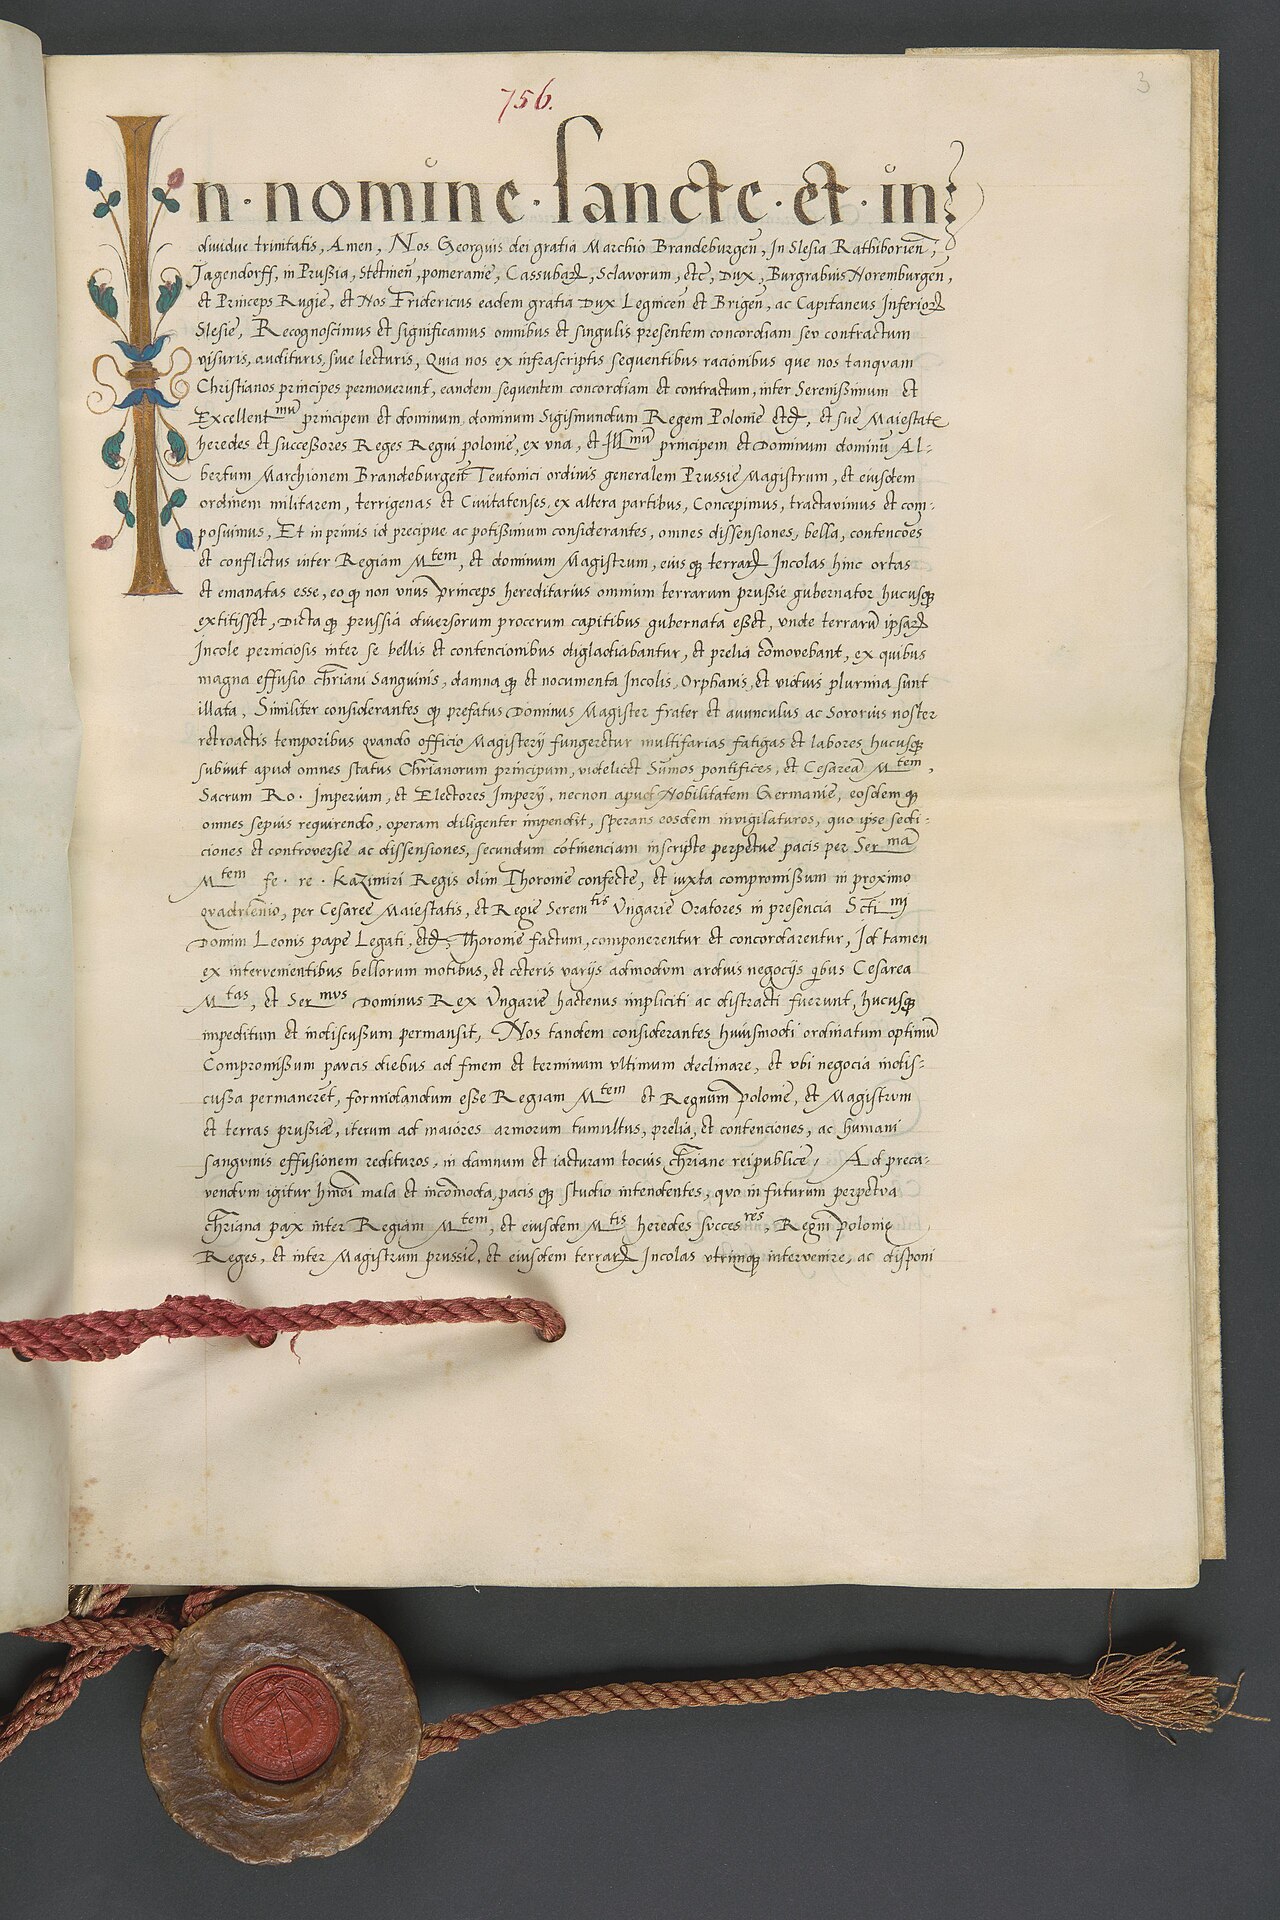 3
756.
In · nomine · sancte · et · in:
diuidue trinitatis, Amen, Nos Georgius dei gratia Marchio Brandeburgeñ, In Slesia Rathiborieñ,
Jagendorff, in Prußia, Stetineñ, pomeranie, Cassubaꝝ, Sclavorum, etc̃, Dux, Burgrabius Noremburgeñ,
et Princeps Rugie, et Nos Fridericus eadem gratia Dux Legniceñ et Brigeñ, ac Capitaneus Inferioꝝ
Slesie, Recognoscimus et significamus omnibus et singulis presentem concordiam seu contractum
visuris, audituris, siue lecturis, Quia nos ex infrascriptis sequentibus racionibus que nos tanquam
Christianos principes permouerunt, eandem sequentem concordiam et contractum, inter Serenißimum et
Excellentmũ principem et dominum, dominum Sigismundum Regem Polonie etcꝝ, et sue Maiestate
heredes et succeßores Reges Regni polonie, ex vna, et Illmũ principem et Dominum dominũ Al-
bertum Marchionem Brandeburgeñ Teutonici ordinis generalem Prussie Magistrum, et eiusdem
ordinem militarem, terrigenas et Ciuitatenses, ex altera partibus, Concepimus, tractavimus et com-
posuimus, Et in primis id precipue ac potißimum considerantes, omnes dissensiones, bella, contencões
et conflictus inter Regiam Mtem, et dominum Magistrum, eius qꝫ terraꝝ Incolas hinc ortas
et emanatas esse, eo qꝫ non vnus princeps hereditarius omnium terrarum prußie gubernator hucusqꝫ
extitisset, Dicta qꝫ prussia diuersorum procerum capitibus gubernata eßet, vnde terrarũ ipsaꝝ
Incole perniciosis inter se bellis et contencionibus digladiabantur, et prelia cõmovebant, ex quibus
magna effusio chr̃iani Sanguinis, damna qꝫ et nocumenta Incolis, Orphanis, et viduis plurima sunt
illata, Similiter considerantes qꝫ prefatus Dominus Magister frater et auunculus ac Sororius noster
retroactis temporibus quando officio Magisterij fungeretur multifarias fatigas et labores hucusqꝫ
subiuit apud omnes status Chr̃ianorum principum, videlicet Sũmos pontifices, et Cesareã Mtem,
Sacrum Ro · Imperium, et Electores Imperij, necnon apud Nobilitatem Germanie, eosdem qꝫ
omnes sepius requirendo, operam diligenter impendit, sperans eosdem invigilaturos, quo ipse sedi-
ciones et controversie ac dissensiones, secundum cõtinenciam inscripte perpetue pacis per Sermã
Mtem fe · re · Kazimiri Regis olim Thoronie confecte, et iuxta compromißum in proximo
quadriẽnio, per Cesaree Maiestatis, et Regie Seremtis Vngarie Oratores in presencia Sctimi
Domini Leonis pape Legati, etcꝝ, Thoronie factum, componerentur et concordarentur, Id tamen
ex intervenientibus bellorum motibus, et ceteris varijs admodum arduis negocijs qibus Cesarea
Mtas, et Sermus Dominus Rex Vngarie hactenus impliciti ac distracti fuerunt, hucusqꝫ
impeditum et indiscussum permansit, Nos tandem considerantes huiusmodi ordinatum optimũ
Compromißum paucis diebus ad finem et terminum vltimum declinare, et vbi negocia indis-
cußa permaneret, formidandum eße Regiam Mtem et Regnum polonie, et Magistrum
et terras prußiæ, iterum ad maiores armorum tumultus, prelia, et contenciones, ac humani
sanguinis effusionem redituros, in damnum et iacturam tocius chr̃iane reipublice, Ad preca-
vendum igitur hmõi mala et incõmoda, pacis qꝫ studio intendentes, quo in futurum perpetua
chr̃iana pax inter Regiam Mtem, et eiusdem Mtis heredes succesres, Regni polonie
Reges, et inter Magistrum prussie, et eiusdem terraꝝ Incolas vtrinqꝫ intervenire, ac disponi